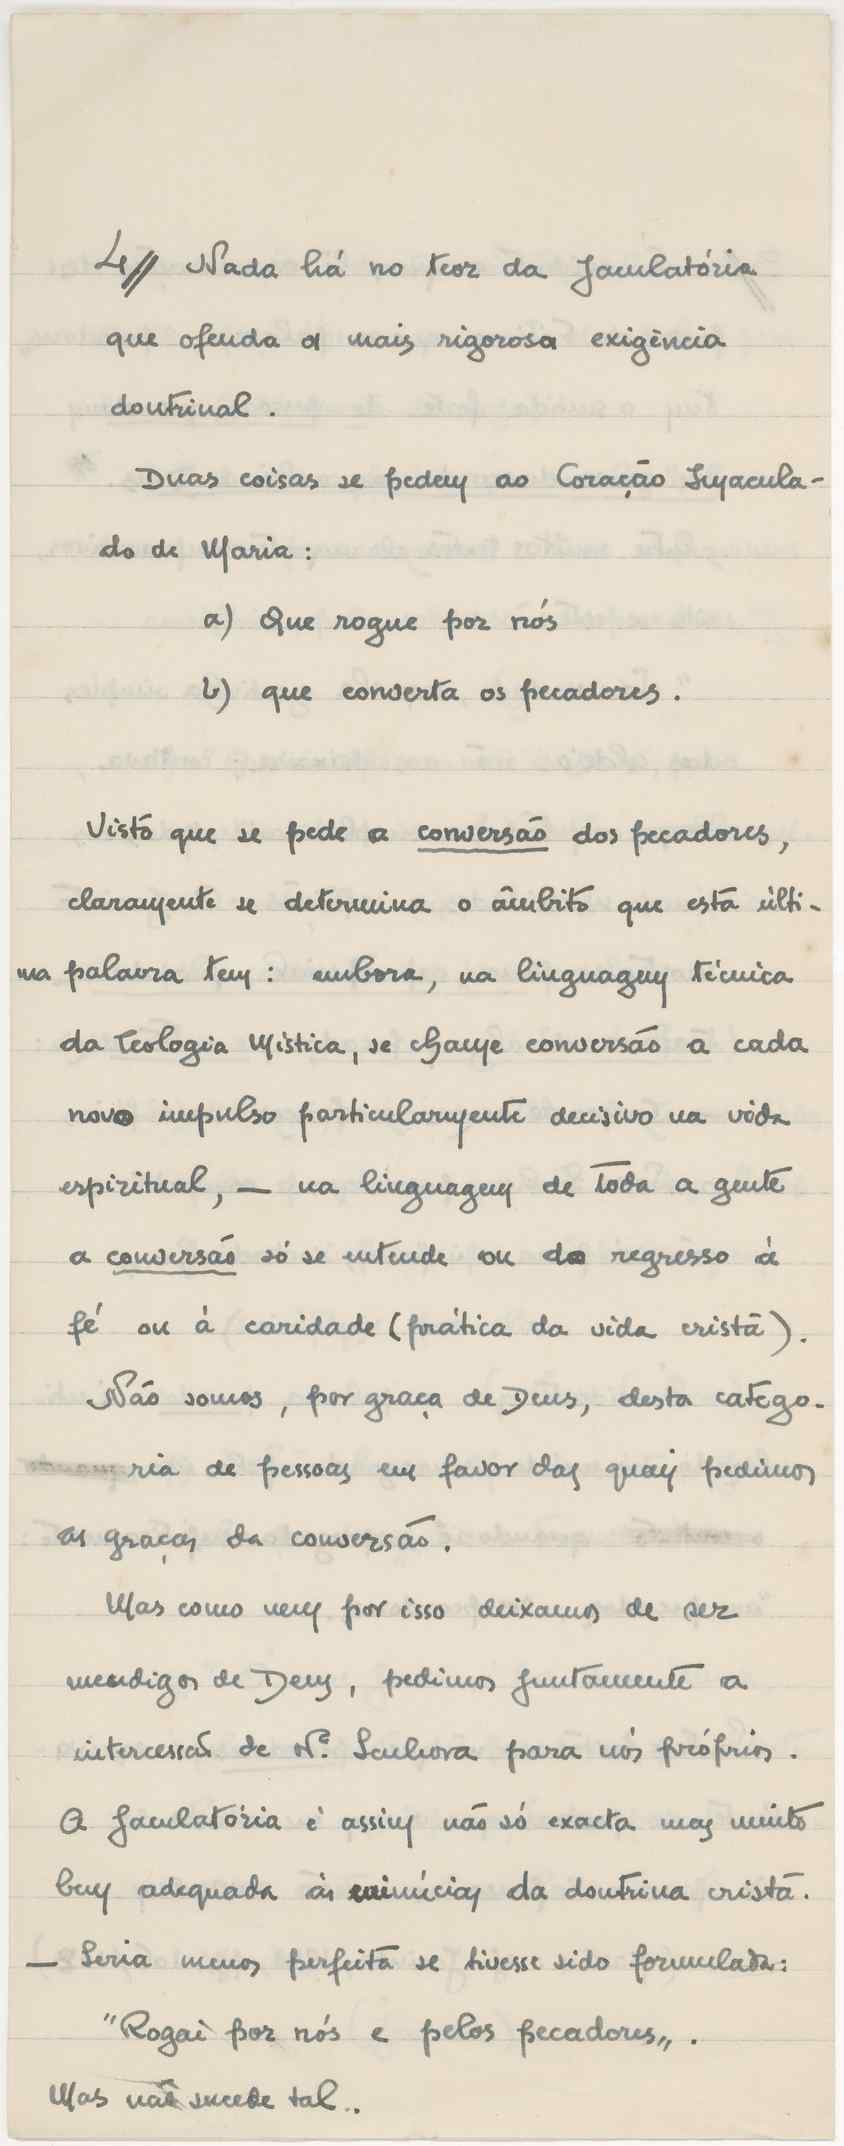 4// Nada há no teor da Jaculatória
que ofenda a mais rigorosa exigência
doutrinal.
Duas coisas se pedem ao Coração Imacula-
do de Maria:
a) Que rogue por nós
b) que converta os pecadores.
Visto que se pede a conversão dos pecadores,
claramente se determina o âmbito que esta últi-
ma palavra tem: embora, na linguagem técnica
da Teologia Mística, se chame conversão a cada
novo impulso particularmente decisivo na vida
espiritual, — na linguagem de toda a gente
a conversão só se entende ou do regresso à
fé ou à caridade (prática da vida cristã).
Não somos, por graça de Deus, desta catego-
ria de pessoas em favor das quais pedimos
as graças da conversão.
Mas como nem por isso deixamos de ser
mendigos de Deus, pedimos juntamente a
intercessão de N.ª Senhora para nós próprios.
A Jaculatória é assim não só exacta mas muito
bem adequada às minúcias da doutrina cristã.
— Seria menos perfeita se tivesse sido formulada:
"Rogai por nós e pelos pecadores„.
Mas não sucede tal..